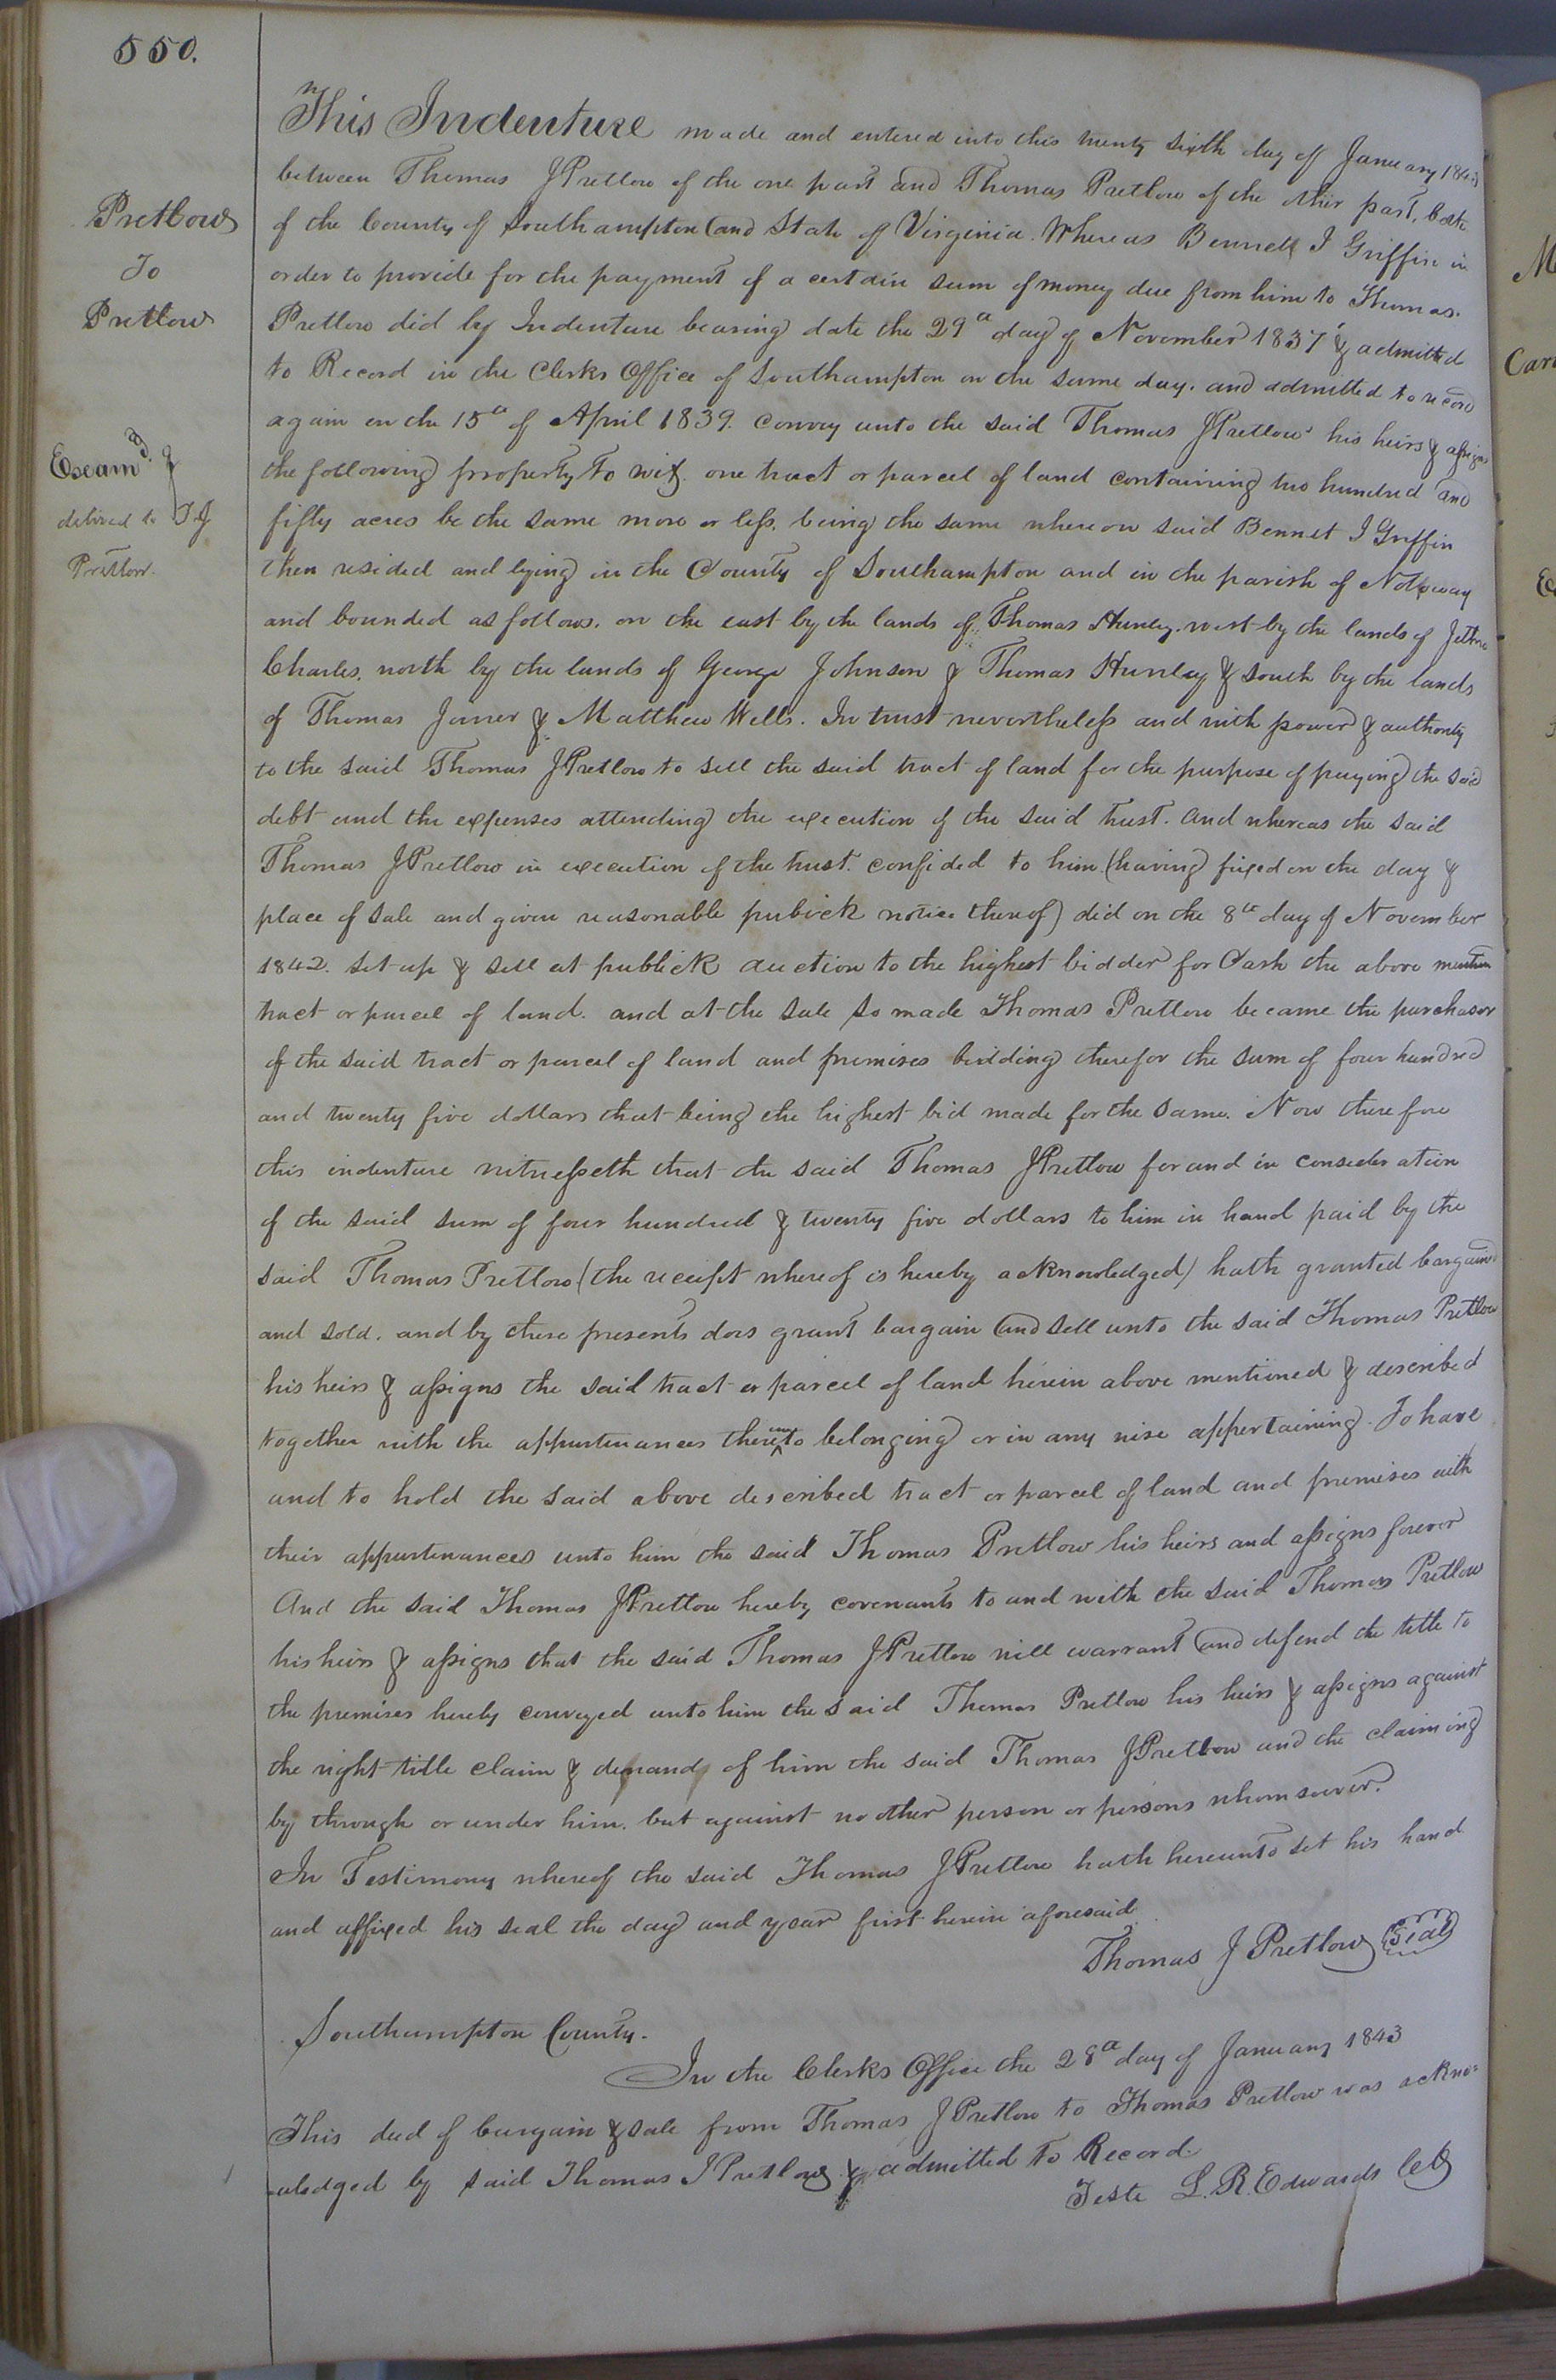 550.
Pretlow
To
Pretlow
Exam'd &
delivered to T J
Pretlow.
This Indenture made and entered into this twenty sixth day of January 1843
between Thomas J Pretlow of the one part and Thomas Pretlow of the other part, both
of the County of Southampton and State of Virginia. Whereas Bennett J Griffin in
order to provide for the payment of a certain sum of money due from him to Thomas
Pretlow did by Indenture bearing date the 29th day of November 1837 & admitted
to Record in the Clerks Office of Southampton on the same day. and admitted to record
again on the 15th of April 1839. convey unto the said Thomas J Pretlow his heirs & assigns
the following property to wit. one tract or parcel of land containing two hundred and
fifty acres be the same more or less, being the same whereon said Bennet J Griffin
then resided and lying in the County of Southampton and in the parish of Nottoway
and bounded as follows. on the east by the lands of Thomas Hunley. west by the lands of Jethro
Charles, north by the lands of George Johnson & Thomas Hunley & south by the lands
of Thomas Joiner & Matthew Wells. In trust nevertheless and with power & authority
to the said Thomas J Pretlow to sell the said tract of land for the purpose of paying the said
debt and the expenses attending the execution of the said trust. And whereas the said
Thomas J Pretlow in execution of the trust confided to him (having fixed on the day &
place of sale and given reasonable pubick notice thereof) did on the 8th day of November
1842. set up & sell at publick auction to the highest bidder for Cash the above mention
tract or parcel of land. and at the sale so made Thomas Pretlow became the purchaser
of the said tract or parcel of land and premises bidding therefor the sum of four hundred
and twenty five dollars that being the highest bid made for the same. Now therefore
this indenture witnesseth that the said Thomas J Pretlow for and in consideration
of the said sum of four hundred & twenty five dollars to him in hand paid by the
said Thomas Pretlow (the receipt whereof is hereby acknowledged) hath granted bargained
and sold. and by these presents does grant bargain and sell unto the said Thomas Pretlow
his heirs & assigns the said tract or parcel of land herein above mentioned & described
together with the appurtenances thereunto belonging or in any wise appertaining. To have
and to hold the said above described tract or parcel of land and premises with
their appurtenances unto him the said Thomas Pretlow his heirs and assigns forever
And the said Thomas J Pretlow hereby covenants to and with the said Thomas Pretlow
his heirs & assigns that the said Thomas J Pretlow will warrant and defend the title to
the premises hereby conveyed unto him the said Thomas Pretlow his heirs & assigns against
the right title claim & demand of him the said Thomas J Pretlow and the claiming
by through or under him. but against no other person or persons whomsoever.
In Testimony whereof the said Thomas J Pretlow hath hereunto set his hand
and affixed his seal the day and year first herein aforesaid
Thomas J Pretlow Seal
Southampton County.
In the Clerks Office the 28th day of January 1843
This deed of bargain & sale from Thomas J Pretlow to Thomas Pretlow was ackno=
wledged by said Thomas J Pretlow & admitted to Record
Teste L. R. Edwards Clk